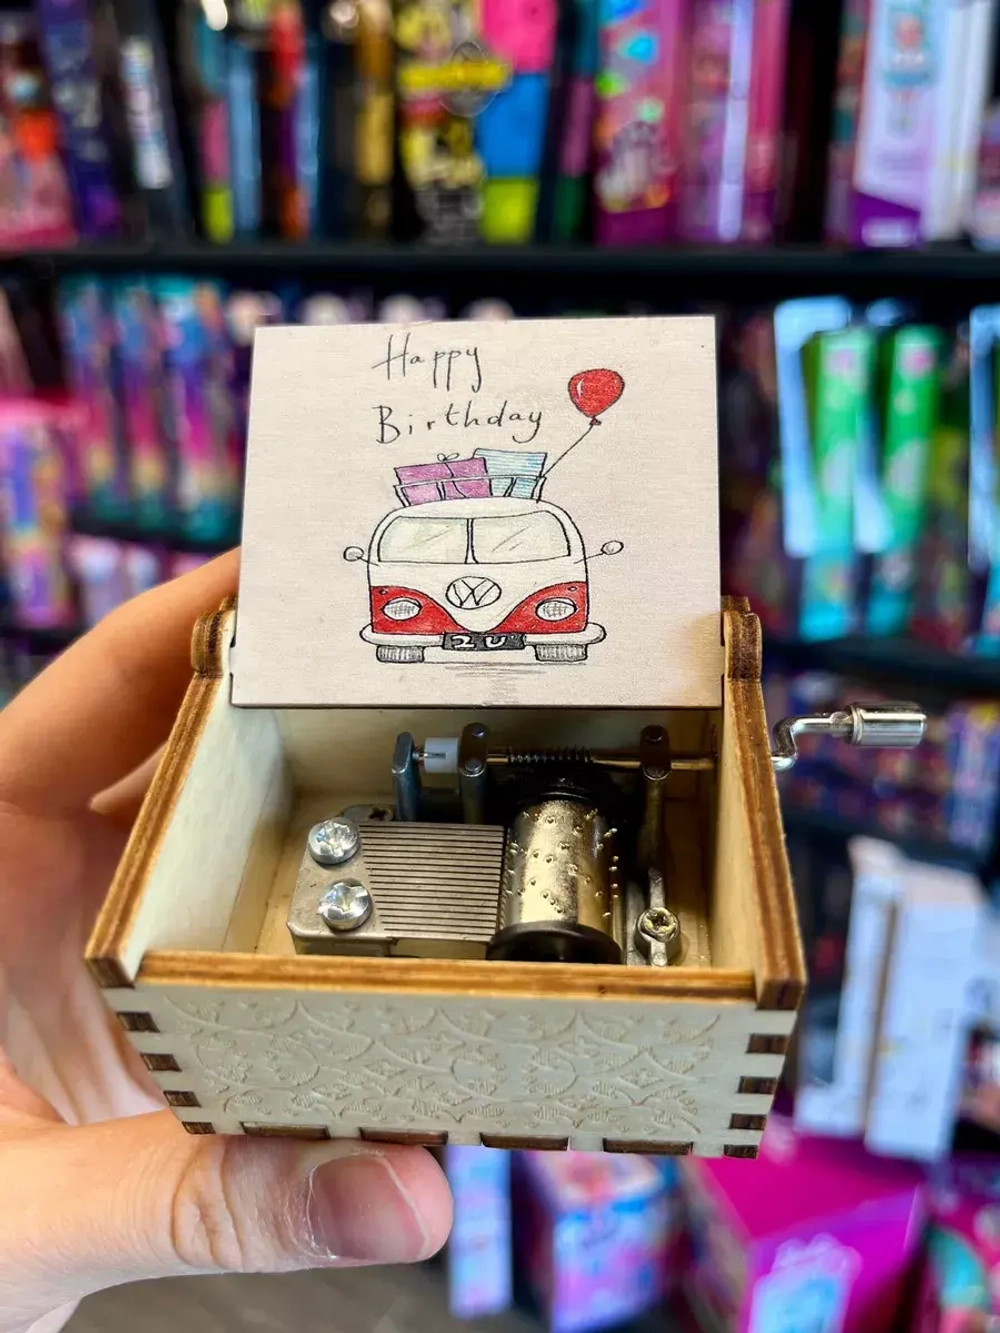 Happy
Birthday
VW
2 U